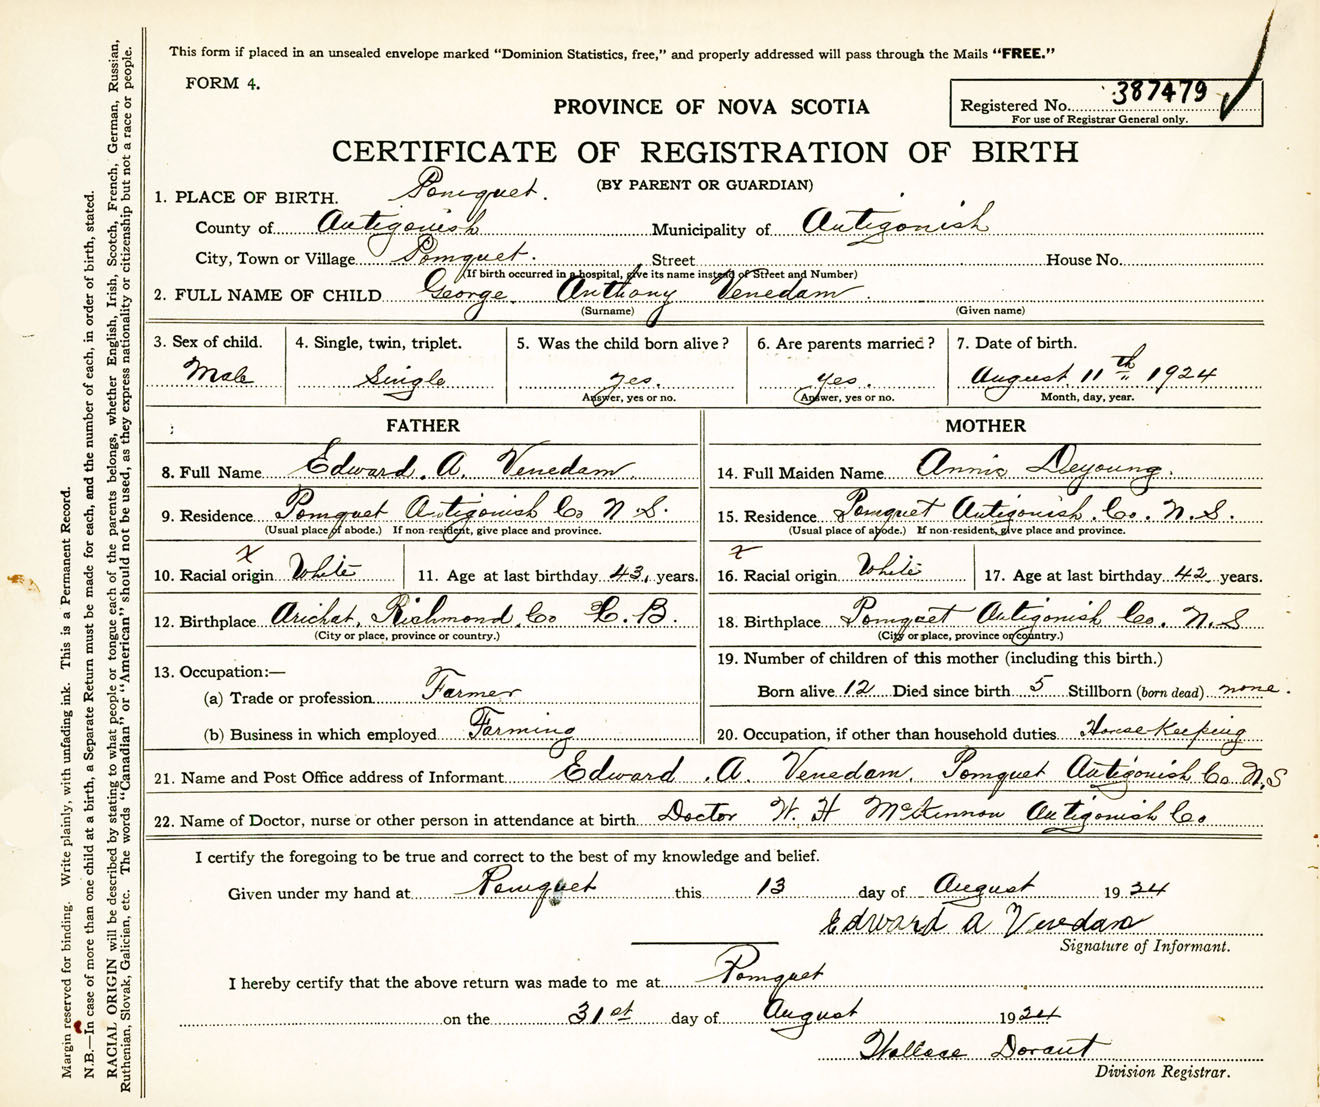 This form if placed in an unsealed envelope marked “Dominion Statistics, free,” and properly addressed will pass through the Mails “FREE.”
FORM 4.
PROVINCE OF NOVA SCOTIA
Registered No. 387479
For use of Registrar General only.
CERTIFICATE OF REGISTRATION OF BIRTH
(BY PARENT OR GUARDIAN)
1. PLACE OF BIRTH. Pomquet.
County of Antigonish Municipality of Antigonish
City, Town or Village Pomquet. Street House No.
(If birth occurred in a hospital, give its name instead of Street and Number)
2. FULL NAME OF CHILD George Anthony Venedam
(Surname) (Given name)
3. Sex of child. 4. Single, twin, triplet. 5. Was the child born alive? 6. Are parents married? 7. Date of birth.
Male Single yes. yes. August 11th 1924
Answer, yes or no. Answer, yes or no. Month, day, year.
FATHER MOTHER
8. Full Name Edward. A. Venedam 14. Full Maiden Name Annie Deyoung.
9. Residence Pomquet Antigonish Co N S. 15. Residence Pomquet Antigonish Co. N.S.
(Usual place of abode.) If non-resident, give place and province. (Usual place of abode.) If non-resident, give place and province.
x x
10. Racial origin White 11. Age at last birthday 43, years. 16. Racial origin White 17. Age at last birthday 42 years.
12. Birthplace Arichat, Richmond, Co C. B. 18. Birthplace Pomquet Antigonish Co. N.S
(City or place, province or country.) (City or place, province or country.)
13. Occupation:— 19. Number of children of this mother (including this birth.)
(a) Trade or profession Farmer Born alive 12 Died since birth 5 Stillborn (born dead) none.
(b) Business in which employed Farming 20. Occupation, if other than household duties House Keeping
21. Name and Post Office address of Informant Edward .A. Venedam, Pomquet Antigonish Co N.S
22. Name of Doctor, nurse or other person in attendance at birth Doctor W. H McKinnon Antigonish Co
I certify the foregoing to be true and correct to the best of my knowledge and belief.
Given under my hand at Pomquet this 13 day of August 1924
Edward A Venedam
Signature of Informant.
I hereby certify that the above return was made to me at Pomquet
on the 31st day of August 1924
Wallace Dorant
Division Registrar.
Margin reserved for binding. Write plainly, with unfading ink. This is a Permanent Record.
N.B.—In case of more than one child at a birth, a Separate Return must be made for each, and the number of each, in order of birth, stated.
RACIAL ORIGIN will be described by stating to what people or tongue each of the parents belongs, whether English, Irish, Scotch, French, German, Russian,
Ruthenian, Slovak, Galician, etc. The words “Canadian” or “American” should not be used, as they express nationality or citizenship but not a race or people.